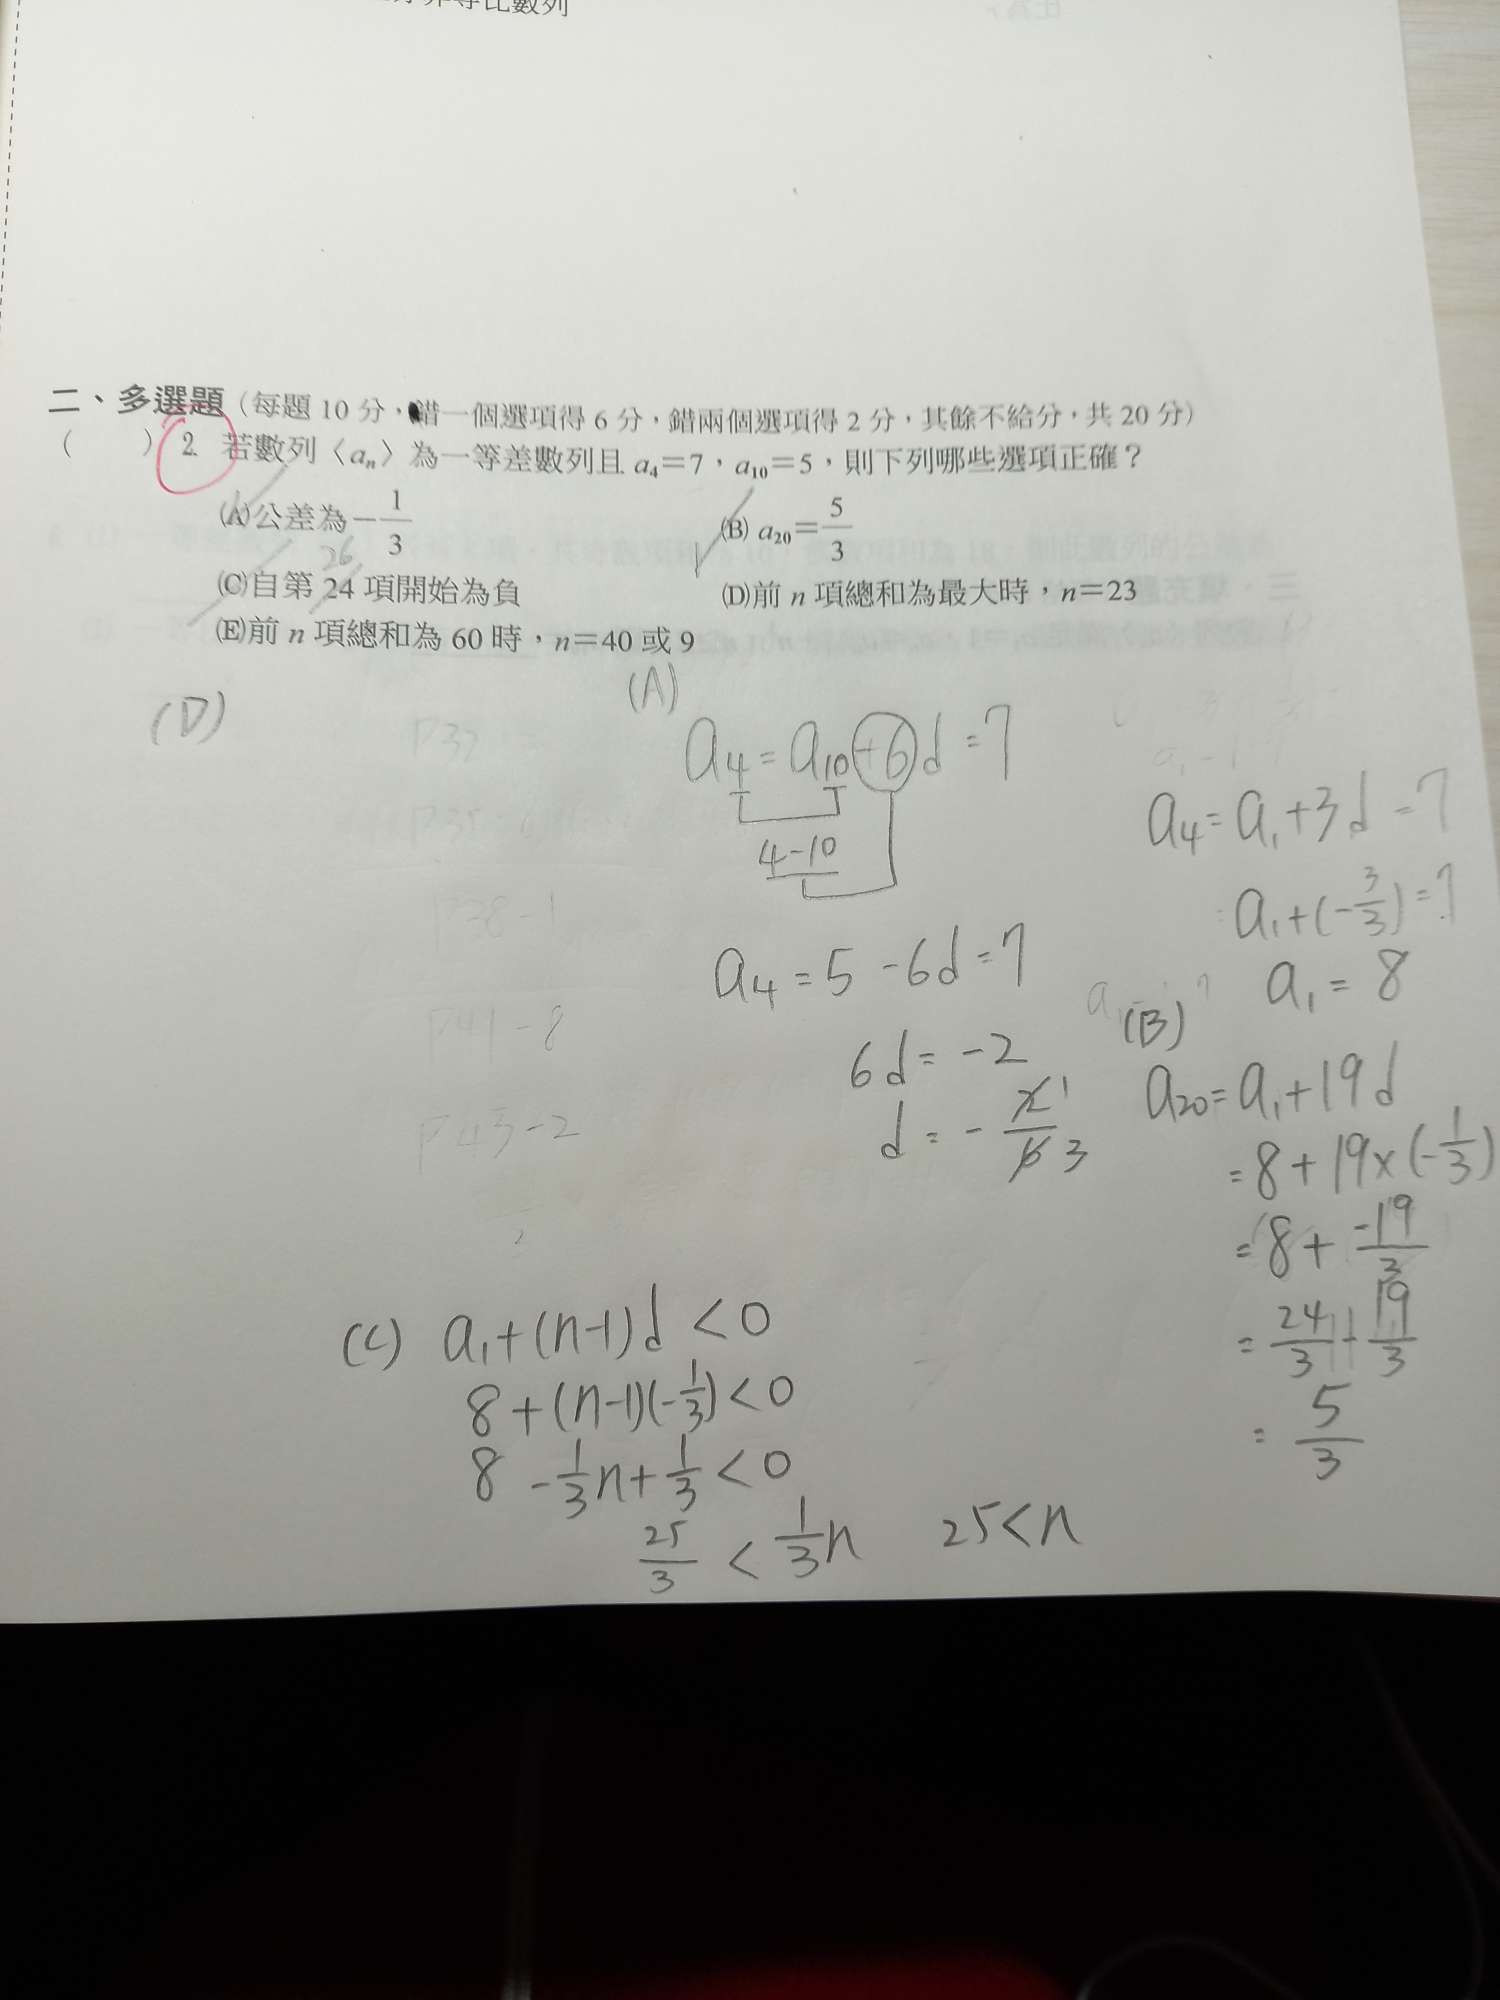 等比數列
二、多選題(每題 10 分,錯一個選項得 6 分,錯兩個選項得 2 分,其餘不給分,共 20 分)
(  ) 2. 若數列〈aₙ〉為一等差數列且 a₄=7,a₁₀=5,則下列哪些選項正確?
(A)公差為 -1/3 (B) a₂₀=5/3
26
(C)自第 24 項開始為負 (D)前 n 項總和為最大時,n=23
(E)前 n 項總和為 60 時,n=40 或 9
(D)
(A)
a₄=a₁₀+6d=7
4-10
a₄=5-6d=7
6d=-2
d=-2/6 1 3
a₄=a₁+3d=7
a₁+(-3/3)=7
a₁=8
(B)
a₂₀=a₁+19d
=8+19×(-1/3)
=8+-19/3
=24/3-19/3
=5/3
(C) a₁+(n-1)d<0
8+(n-1)(-1/3)<0
8-1/3n+1/3<0
25/3<1/3n 25<n